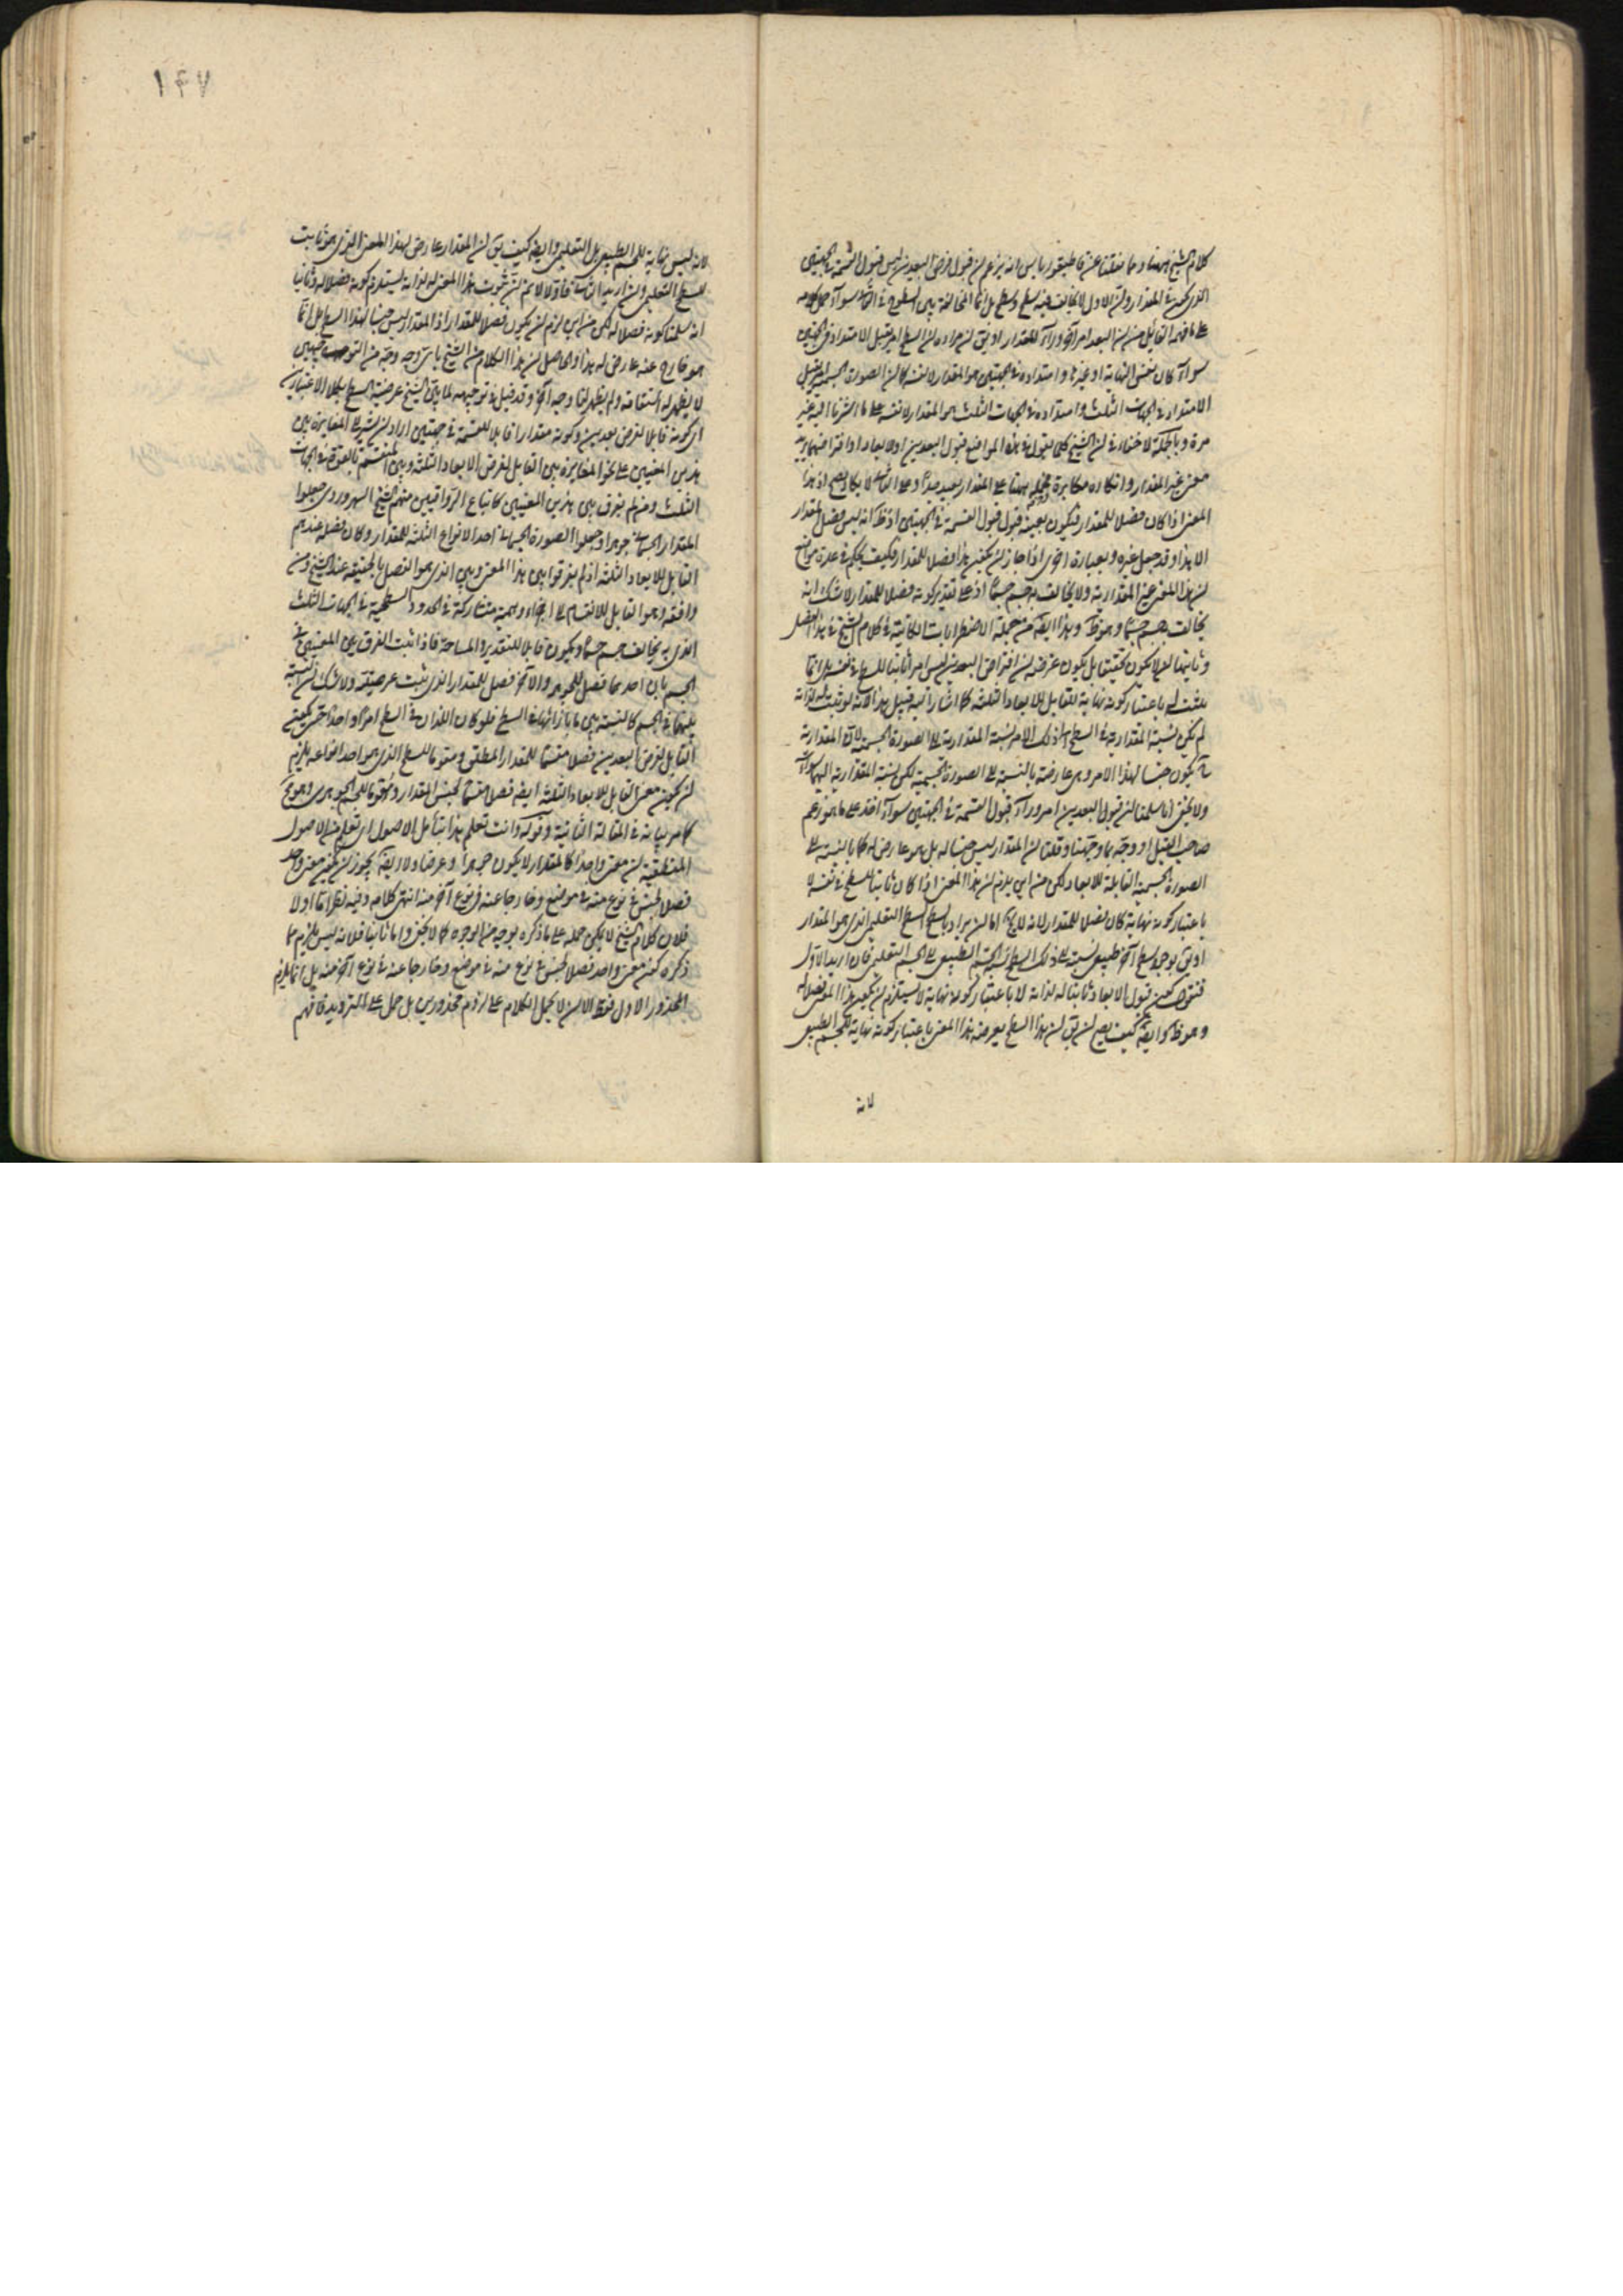 كلام الشيخ ههنا ومما نقلنا عن قاطيغورياس انه يزعم ان قبول فرض البعدين ليس قبول القسمة في الجهتين
الذي كمية المقدار وان الاول لا يخالف فيه سطح وسطح بل انما المخالفة بين السطوح في الثاني سواء حمل كلامه
على ما فهم القائل من ان البعد امر آخر وراء المقدار او يق ان مراده ان السطح امر يقبل الامتداد في الجهتين
سواء كان نفس النهاية او غيرها وامتداده في الجهتين هو المقدار لا نفسه كما ان الصورة الجسمية امر يقبل
الامتداد في الجهات الثلث وامتداده في الجهات الثلث هو المقدار لا نفسه على ما اشرنا اليه غير
مرة وبالجملة لا خفاء في ان الشيخ كلما يقول في هذه المواضع قبول البعدين او الابعاد او افتراضهما يريد
معنى غير المقدار وانكاره مكابرة فحمله ههنا على المقدار بعيد جدا وعلى الثاني لا يكاد يصح اذ هذا
المعنى اذا كان فصلا للمقدار فيكون بعينه قبول قبول القسمة في الجهتين اذ ظ انه ليس فصل المقدار
الا هذا وقد جعل غيره وبعبارة اخرى اذا جاز ان يكون هذا فصلا للمقدار فكيف يحكم في عدة مواضع
ان هذا المعنى غير المقدارية ولا يخالف به جسم جسما اذ على تقدير كونه فصلا للمقدار لا شك انه
يخالف به جسم جسما وهو ظ وهذا ايضا من جملة الاضطرابات الكائنة في كلام الشيخ في هذا الفصل
وثانيهما ان لا يكون تحقيقا بل يكون غرضه ان افتراض البعدين ليس امرا ثابتا للسطح في نفسه بل انما
يثبت له باعتبار كونه نهاية للقابل للابعاد الثلثة كما اشار اليه قبيل هذا لانه لو ثبت له لذاته
لم يكن نسبة المقدارية في السطح الى ذلك الامر نسبة المقدارية الى الصورة الجسمية لان المقدارية
ح يكون جنسا لهذا الامر وهي عارضة بالنسبة الى الصورة الجسمية لكن نسبة المقدارية اليهما سواء
ولا يخفى انا سلمنا ان قبول البعدين امر وراء قبول القسمة في الجهتين سواء اخذ على ما هو زعم
صاحب القيل او وجه بما وجهنا وقلنا ان المقدار ليس جنسا له بل هو عارض له كما بالنسبة الى
الصورة الجسمية القابلة للابعاد لكن من اين يلزم ان هذا المعنى اذا كان ثابتا للسطح في نفسه لا
باعتبار كونه نهاية كان فصلا للمقدار لانه لا يخ اما ان يراد بالسطح السطح التعليمي الذي هو المقدار
او يق بوجود سطح آخر طبيعي نسبته الى ذلك السطح نسبة الجسم الطبيعي الى الجسم التعليمي فان اريد الاول
فنقول كون قبول الابعاد ثابتا له لذاته لا باعتبار كونه نهاية لا يستلزم ان يكون هذا المعنى فصلا له
وهو ظ وايضا كيف يصح ان يق ان هذا السطح يعرضه هذا المعنى باعتبار كونه نهاية للجسم الطبيعي
لانه
١٤٧
لانه ليس نهاية للجسم الطبيعي بل التعليمي وايضا كيف يق ان المقدار عارض لهذا المعنى الذي هو ثابت
للسطح التعليمي وان اريد الثاني فاولا لا نم ان ثبوت هذا المعنى له لذاته يستلزم كونه فصلا له وثانيا
انه سلمنا كونه فصلا له لكن من اين لزم ان يكون فصلا للمقدار اذ المقدار ليس جنسا لهذا السطح بل انما
هو خارج عنه عارض له هذا والحاصل ان هذا الكلام من الشيخ باي وجه وجه من التوجيهين
لا يظهر له استقامة ولم يظهر لنا وجه آخر وقد قيل في توجيهه لما بين الشيخ عرضية السطح بكلا الاعتبارين
اي كونه قابلا لفرض بعدين وكونه مقدارا قابلا للقسمة في جهتين اراد ان يشير الى المغايرة بين
هذين المعنيين على نحو المغايرة بين القابل لفرض الابعاد الثلثة وبين المنقسم بالقوة في الجهات
الثلث ومن لم يفرق بين هذين المعنيين كاتباع الرواقيين منهم الشيخ السهروردي جعلوا
المقدار الجسماني جوهرا وجعلوا الصورة الجسمانية احد الانواع الثلثة للمقدار وكان فصله عندهم
القابل للابعاد الثلثة اذ لم يفرقوا بين هذا المعنى وبين الذي هو الفصل بالحقيقة عند الشيخ ومن
وافقه وهو القابل للانقسام الى اجزاء وهمية متشاركة في الحدود السطحية في الجهات الثلث
الذي به يخالف جسم جسما ويكون قابلا للتقدير والمساحة فاذا ثبت الفرق بين المعنيين في
الجسم بان احدهما فصل للجوهر والآخر فصل للمقدار الذي ثبت عرضيته ولا شك ان النسبة
بينهما في الجسم كالنسبة بين ما بازائهما في السطح فلو كان اللذان في السطح امرا واحدا حتى يكون
القابل لفرض البعدين فصلا مقسما للمقدار المطلق ومقوما للسطح الذي هو احد انواعه يلزم
ان يكون معنى القابل للابعاد الثلثة ايضا فصلا مقسما لجنس المقدار ومقوما للجسم الجوهري وهو مح
كما مر بيانه في المقالة الثانية وقوله وانت تعلم هذا بتأمل الاصول اي تعلم من الاصول
المنطقية ان معنى واحدا كالمقدار لا يكون جوهرا وعرضا ولا ايضا يجوز ان يكون معنى واحد
فصلا لجنس في نوع منه في موضع وخارجا عنه في نوع آخر منه انتهى كلامه وفيه نظر اما اولا
فلان كلام الشيخ لا يمكن حمله على ما ذكره بوجه من الوجوه كما لا يخفى واما ثانيا فلانه ليس يلزم مما
ذكره كون معنى واحد فصلا لجنس في نوع منه في موضع وخارجا عنه في نوع آخر منه بل انما يلزم
المحذور الاول فقط الا ان لا يحمل الكلام على لزوم محذورين بل حمل على الترديد فافهم